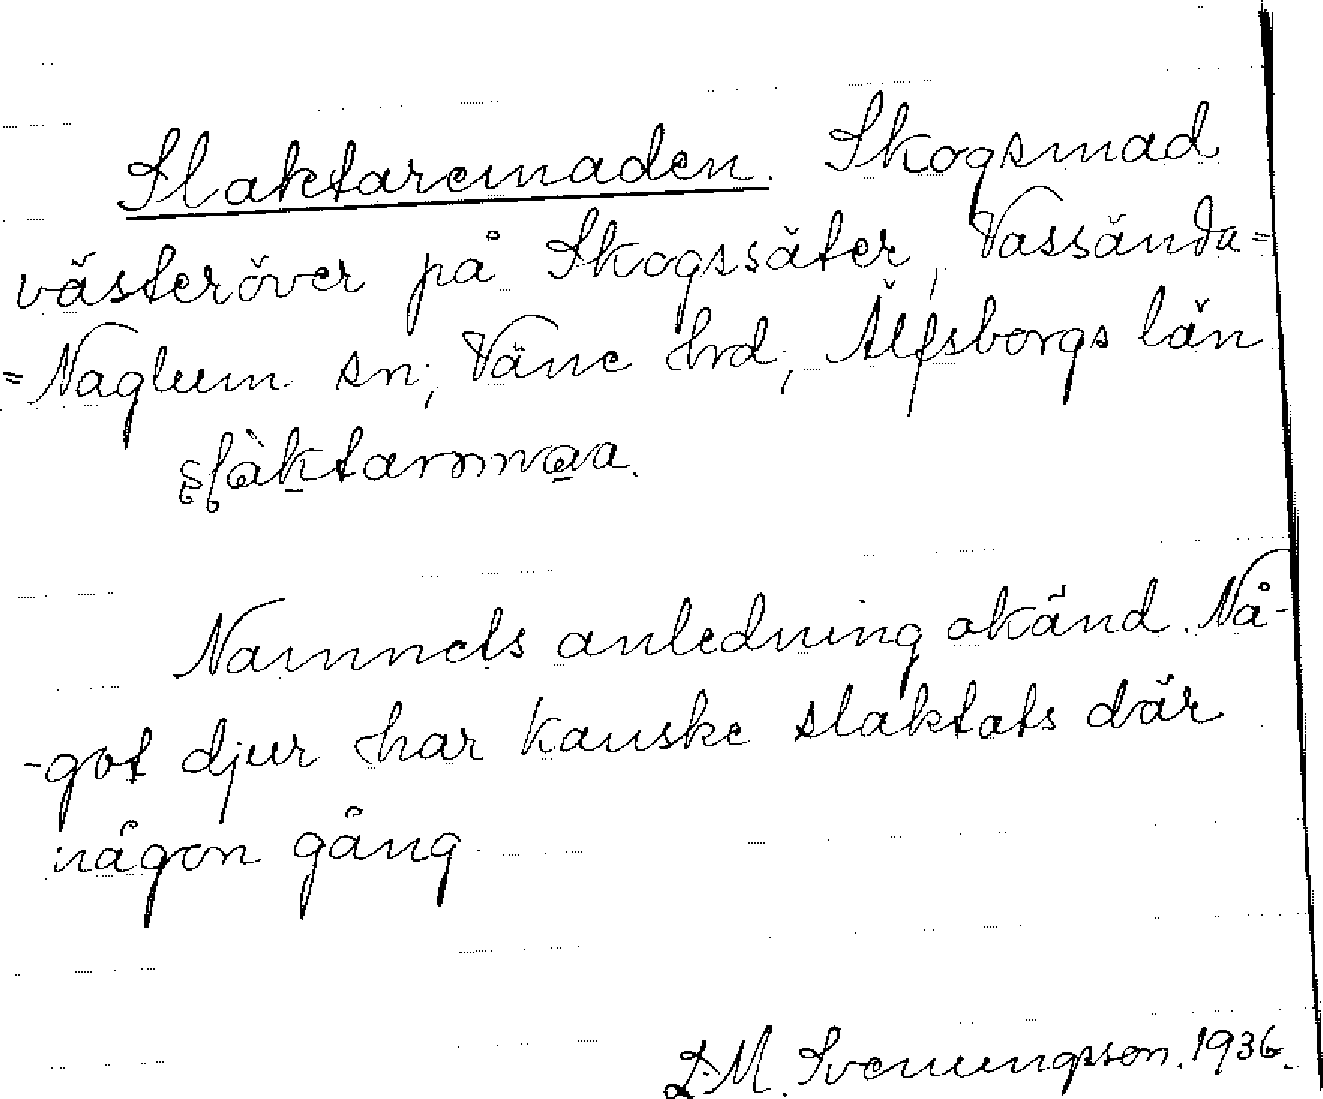 Slaktaremaden. Skogsmad
västeröver på Skogssäter, Vassända=
=Naglum sn, Väne hrd, Älfsborgs län
Namnets anledning okänd. Nå-
-got djur har kanske slaktats där
någon gång
D.M. Svenungsson. 1936.